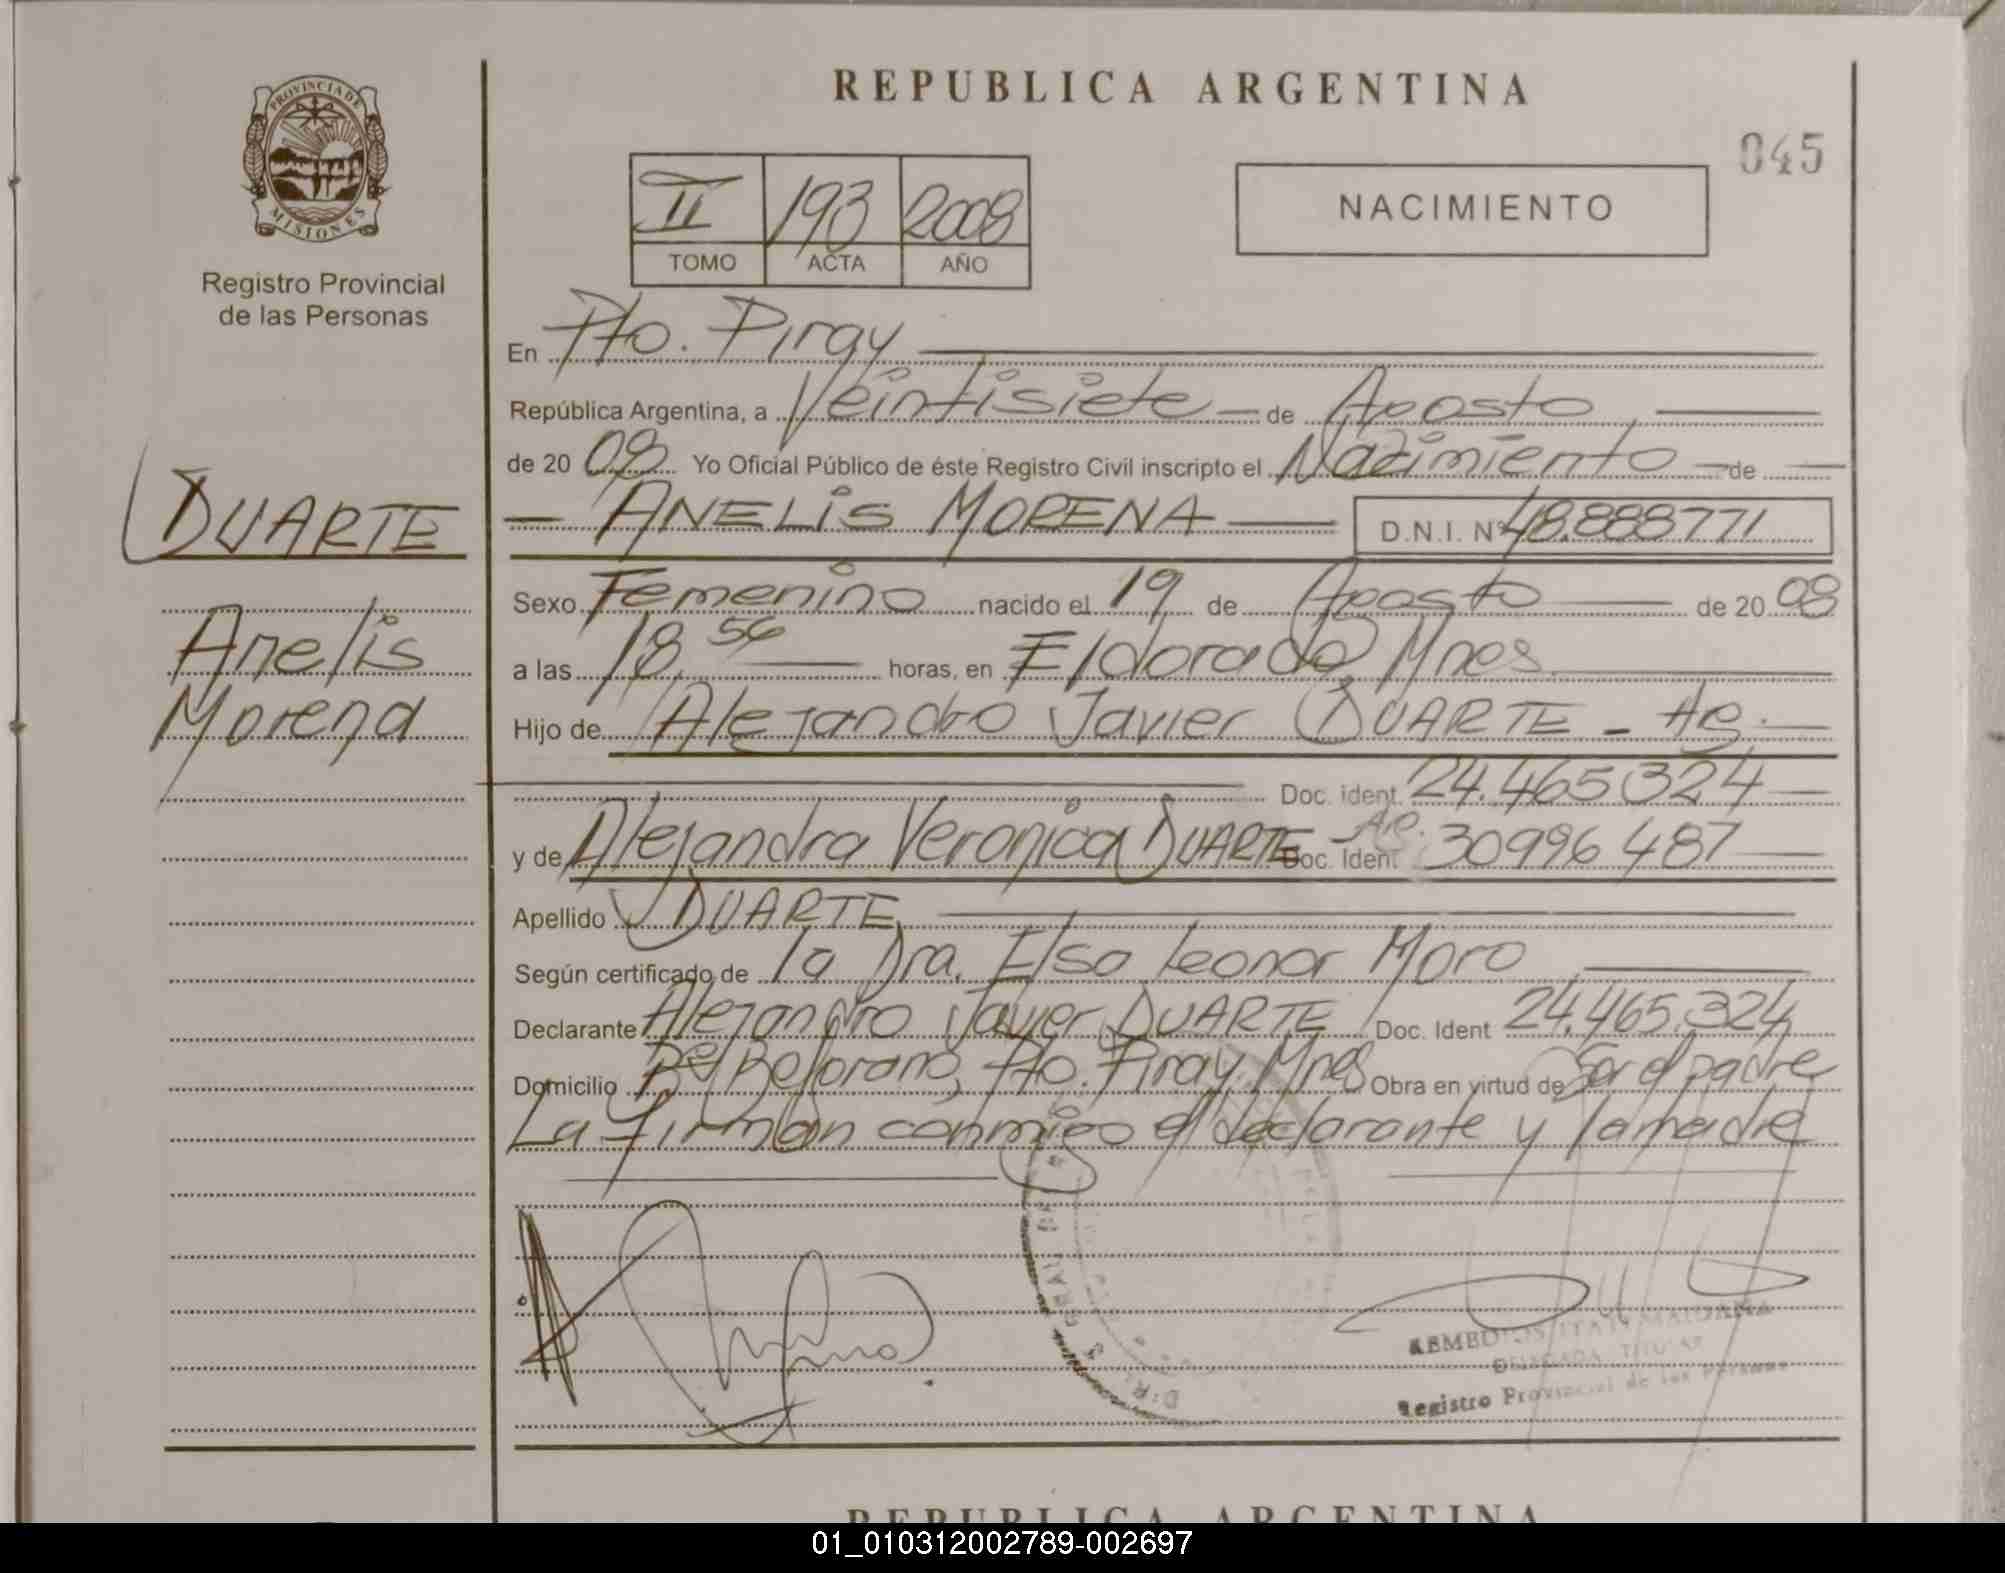 REPUBLICA ARGENTINA
045
PROVINCIA DE
MISIONES
Registro Provincial
de las Personas
II 193 2008
TOMO ACTA AÑO
NACIMIENTO
En Pto. Piray
República Argentina, a Veintisiete de Agosto
de 20 08 Yo Oficial Público de éste Registro Civil inscripto el Nacimiento de
DUARTE
ANELIS MORENA D.N.I. Nº 48.888771
Anelis
Morena
Sexo Femenino nacido el 19 de Agosto de 20 08
a las 18,56 horas, en Eldorado Mnes.
Hijo de Alejandro Javier DUARTE - Ag.
Doc. ident. 24.465324
y de Alejandra Veronica DUARTE - Ag. Doc. Ident 30996487
Apellido DUARTE
Según certificado de la Dra. Elsa Leonor Moro
Declarante Alejandro Javier DUARTE Doc. Ident 24.465.324
Domicilio Bº Belgrano, Pto. Piray Mnes Obra en virtud de Ser el padre
La firman conmigo el declarante y la madre
MAIDANA
DELEGADA TITULAR
Registro Provincial de las Personas
REPUBLICA ARGENTINA
01_010312002789-002697